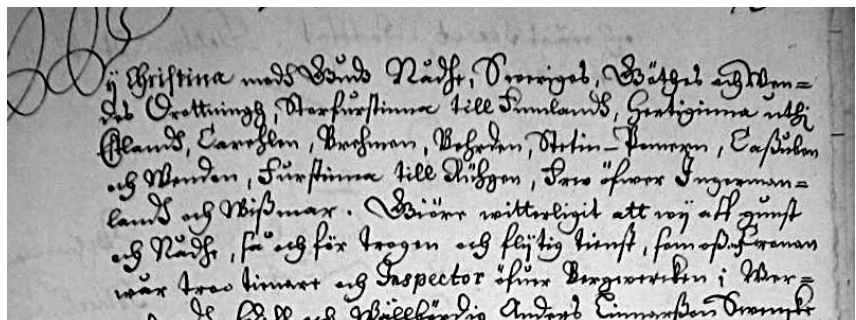 ij Christina medh Gudz Nådhe, Sweriges, Göthes och Wen=
des Drottningh, Storfurstinna till Finnlandh, Hertiginna uthi
Estlandh, Carehlen, Brehmen, Vehrden, Stetin-Pomern, Caßuben
och Wenden, Furstinna till Rühgen, Frw öfwer Ingerman=
landh och Wißmar. Giöre witterligit att wij aff gunst
och Nådhe, så och för trogen och flijtig tienst, som oß Cronan
wår troo tienare och Inspector öfuer Bergzwercken i Wer=
Edell och Wällbördig Anders